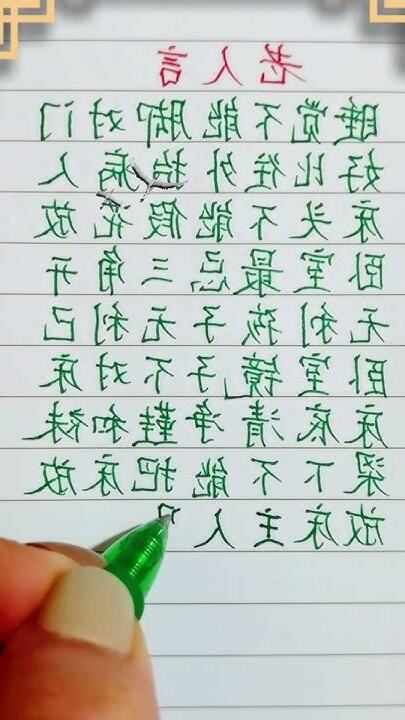 老人言
睡觉不能脚对门
好比往外抬病人
床头不能假花放
卧室最忌三角开
无利孩子无利己
卧室镜子不对床
床底清净鞋和袜
梁下不能把床放
放床主人